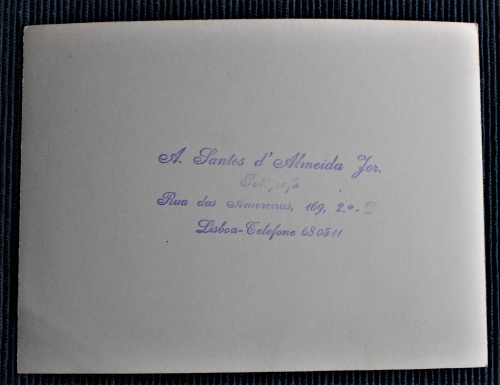 A. Santos d'Almeida Jor.
Fotógrafo
Rua das Amoreiras, 169, 2.º-D
Lisboa-Telefone 680511